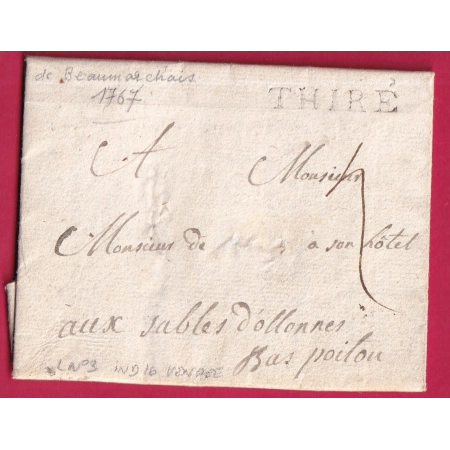 de Beaumarchais
1767
THIRÉ
A Monsieur
Monsieur de à son hôtel
aux sables d'ollonnes
Bas poitou
LN°3 IND 16 VENDEE